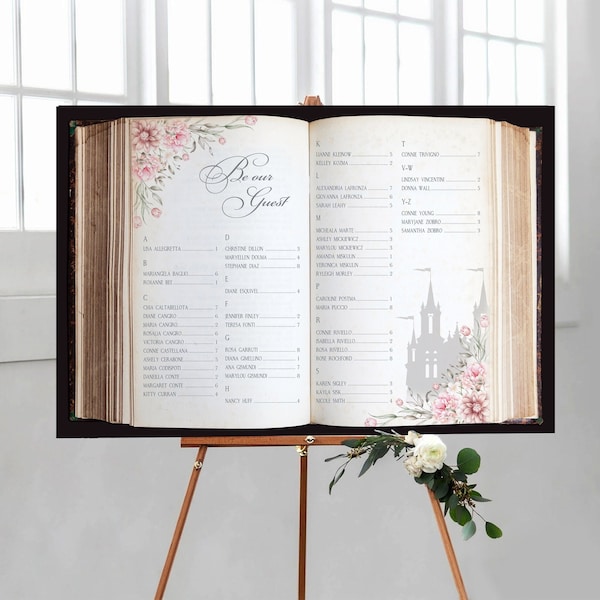 Be our
Guest
A
LISA ALLEGRETTA 1
B
MARIANGELA BAGLIO 6
ROXANNE BEE 1
C
GINA CALTABELLOTA 7
DIANE CANGRO 6
MARIA CANGRO 5
ROSALIA CANGRO 6
VICTORIA CANGRO 1
CONNIE CASTELLANA 7
ASHLEY CERABONE 5
MARIA CODISPOTI 7
DANIELLA CONTE 5
MARGARET CONTE 6
KITTY CURRAN 4
D
CHRISTINE DILLON 3
MARYELLEN DOUMA 4
STEPHANIE DIAZ 8
E
DIANE ESQUIVEL 4
F
JENNIFER FINLEY 2
TERESA FONTI 7
G
ROSA GARRUTI 8
DIANA GIMELLINO 1
ANA GISMUNDI 7
MARYLOU GISMUNDI 8
H
NANCY HUFF 4
K
GIANNE KLEINOW 5
KELLEY KOZMA 3
L
ALEXANDRIA LAFRONZA 7
GIOVANNA LAFRONZA 6
SARAH LEAHY 5
M
MICHEALA MARTE 5
ASHLEY MICKIEWICZ 3
MARYLOU MICKIEWICZ 3
AMANDA MINGULIN 1
VERONICA MINGULIN 1
RYLEIGH MORLEY 2
P
CAROLINE POSTMA 1
RACHEL PROTO 5
R
CONNIE RIVIELLO 6
ISABELLA RIVIELLO 5
ROSA RIVIELLO 6
ROSE ROCHFORD 8
S
KAREN SIGLEY 3
KAYLA SISK 2
NICOLE SMITH 2
T
CONNIE TRAVIGNO 7
V-W
LINDSAY VINCENTINI 2
DONNA WALL 2
Y-Z
CONNIE YOUNG 8
MARYJANE ZIOBRO 4
SAMANTHA ZIOBRO 2